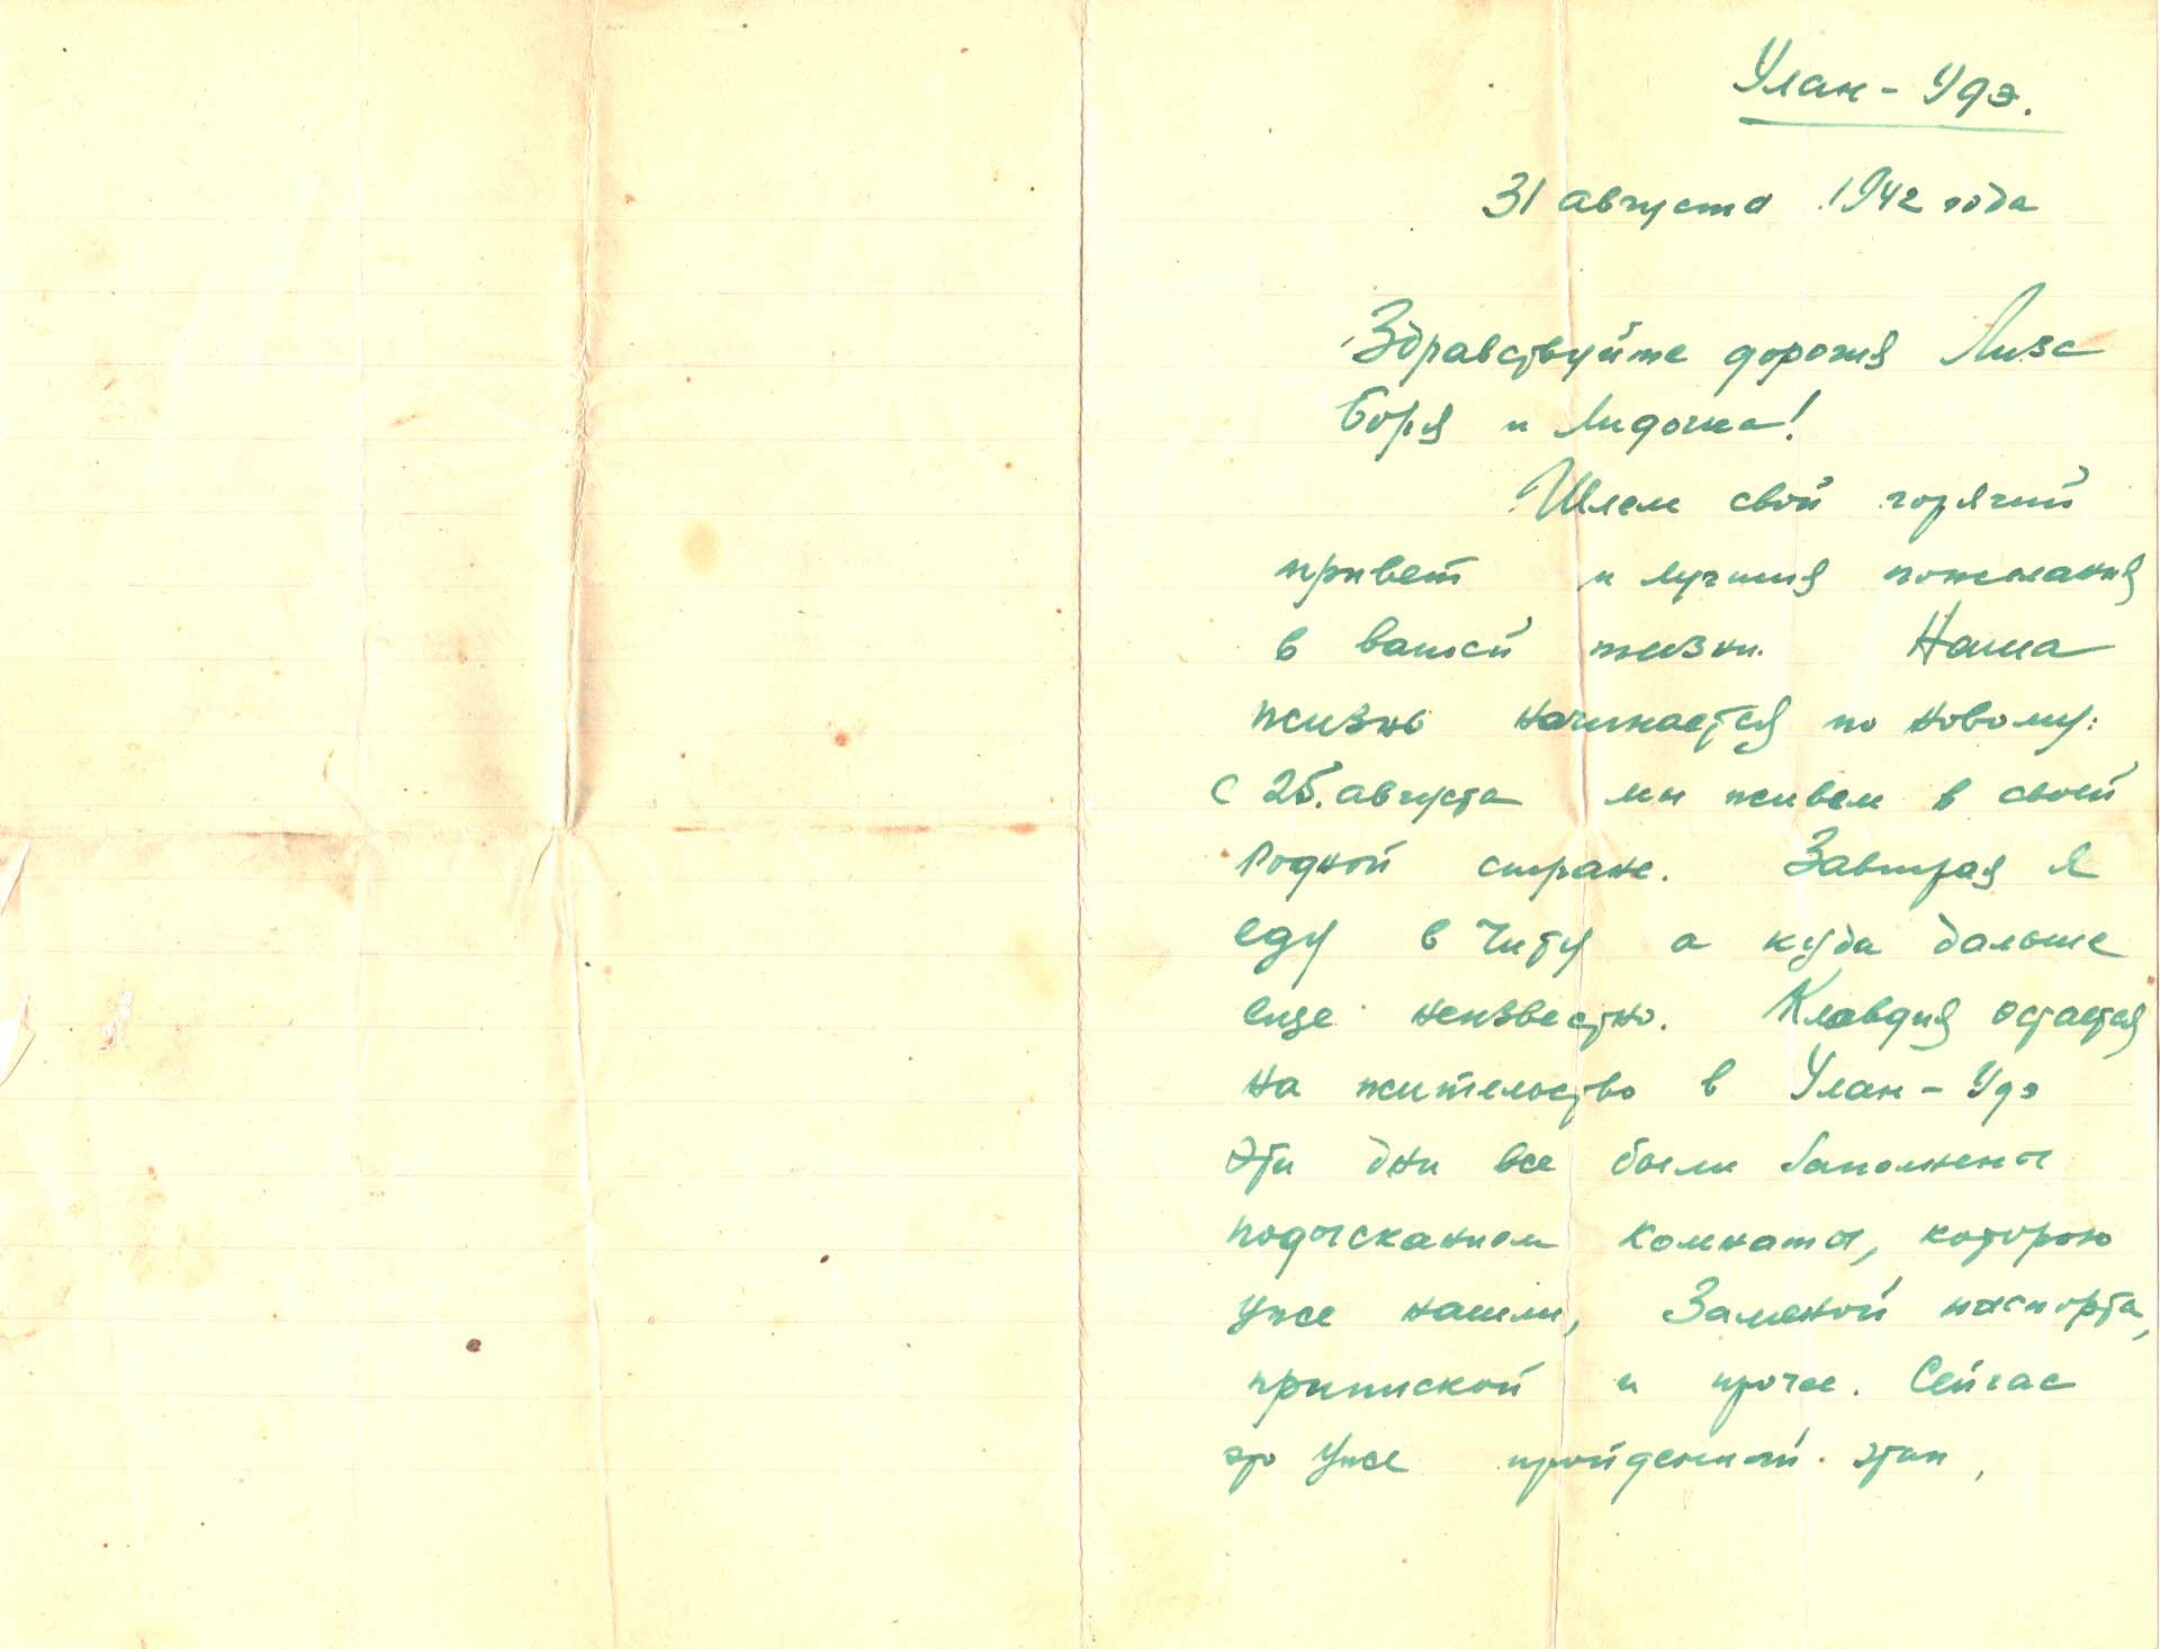 Улан-Удэ.
31 августа 1942 года
Здравствуйте дорогия Лиза
Боря и Лидочка!
Шлем свой горячий
привет и лучшия пожелания
в вашей жизни. Наша
жизнь начинается по новому:
с 25. августа мы живем в своей
родной стране. Завтрая я
еду в Читу а куда дальше
еще неизвестно. Клавдия остается
на жительство в Улан-Удэ
Эти дни все были заполнены
подысканием комнаты, которою
уже нашли, Заменой паспорта,
припиской и прочее. Сейчас
это уже пройденный этап,